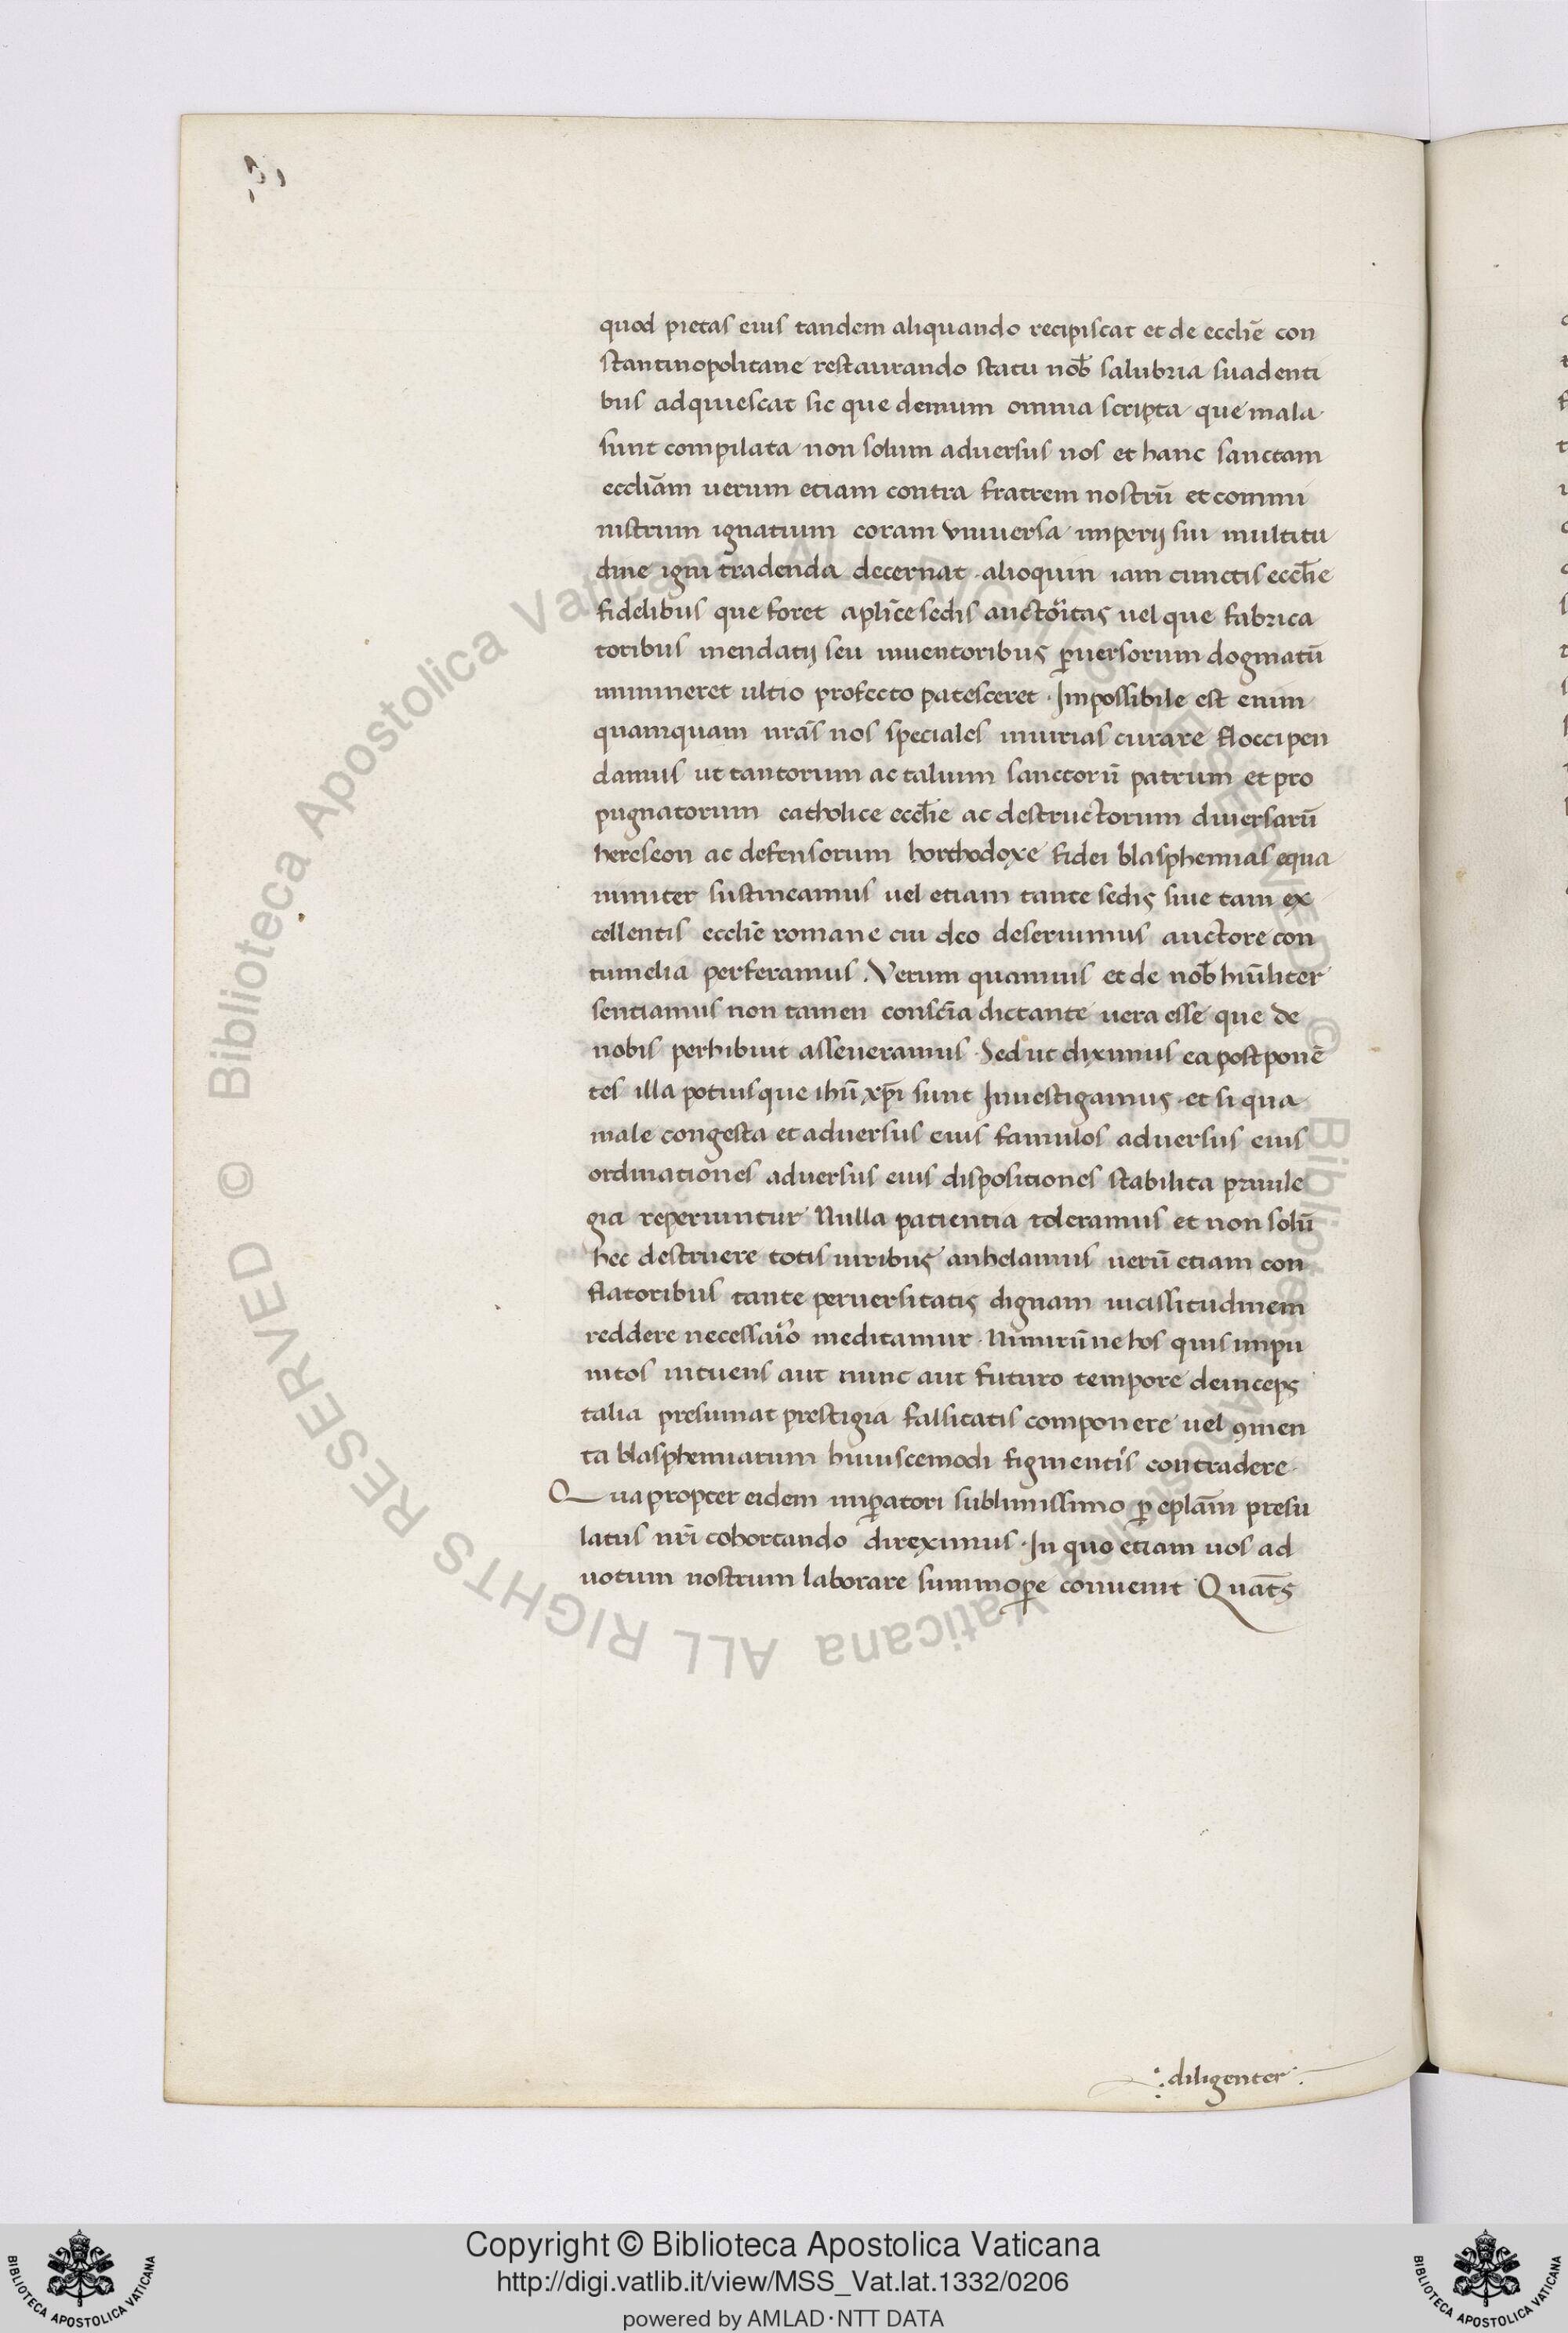 quod pietas eius tandem aliquando recipiscat et de ecclīe con
stantinopolitane restaurando statu nob̄ salubria suadenti
bus adquiescat sic que demum omnia scripta que mala
sunt compilata non solum adversus nos et hanc sanctam
eccliam̄ verum etiam contra fratrem nostrū et commi
nistrum ignatium coram universa imperij sui multitu
dine igni tradenda decernat · alioquin iam cunctis eccl̄ie
fidelibus que foret aplīce sedis auctoītas vel que fabrica
toribus mendatij seu inventoribus p̄versorum dogmatū
immineret ultio profecto patesceret · Impossibile est enim
quamquam nrās nos speciales iniurias curare floccipen
damus ut tantorum ac talium sanctorū patrum et pro
pugnatorum catholice eccl̄ie ac destructorum diversarū
hereseon ac defensorum horthodoxe fidei blasphemias equa
nimiter sustineamus vel etiam tante sedis sive tam ex
cellentis ecclīe romane cui deo deservimus auctore con
tumelia perferamus . Verum quamvis et de nob̄ hūliter
sentiamus non tamen consciā dictante vera esse que de
nobis perhibint asseveramus · Sed ut diximus ea postponē
tes illa potius que ihū xp̄i sunt Investigamus · et si qua
male congesta et adversus eius famulos adversus eius
ordinationes adversus eius dispositiones stabilita privile
gia reperiuntur Nulla patientia toleramus et non solū
hec destruere totis viribus anhelamus verū etiam con
flatoribus tante perversitatis dignam vicissitudinem
reddere necessaīo meditamur · Nimirū ne hos quis impu
nitos intuens aut nunc aut futuro tempore deinceps
talia presumat prestigia falsitatis componere vel ꝯmen
ta blasphemiarum huiuscemodi figmentis contradere ·
Qua propter eidem imp̄atori sublimissimo p̄ eplām presu
latus nrī cohortando direximus · In quo etiam vos ad
votum nostrum laborare summop̄e convenit Quāts
: diligenter :
© Biblioteca Apostolica Vaticana ALL RIGHTS RESERVED © Biblioteca Apostolica Vaticana ALL RIGHTS RESERVED
Copyright © Biblioteca Apostolica Vaticana
http://digi.vatlib.it/view/MSS_Vat.lat.1332/0206
powered by AMLAD · NTT DATA
BIBLIOTECA APOSTOLICA VATICANA
BIBLIOTECA APOSTOLICA VATICANA